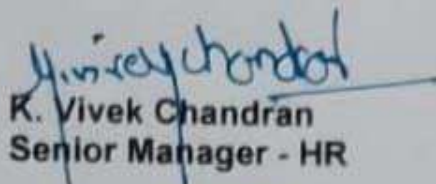 K. Vivek Chandran
Senior Manager - HR